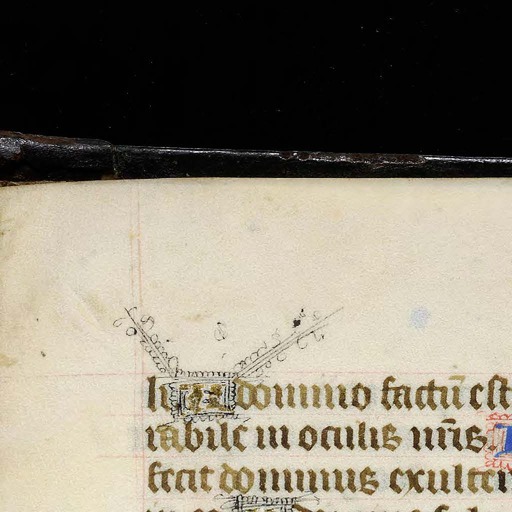 li A domino factū est
rabile in oculis nr̄is.
fecit dominus exulte